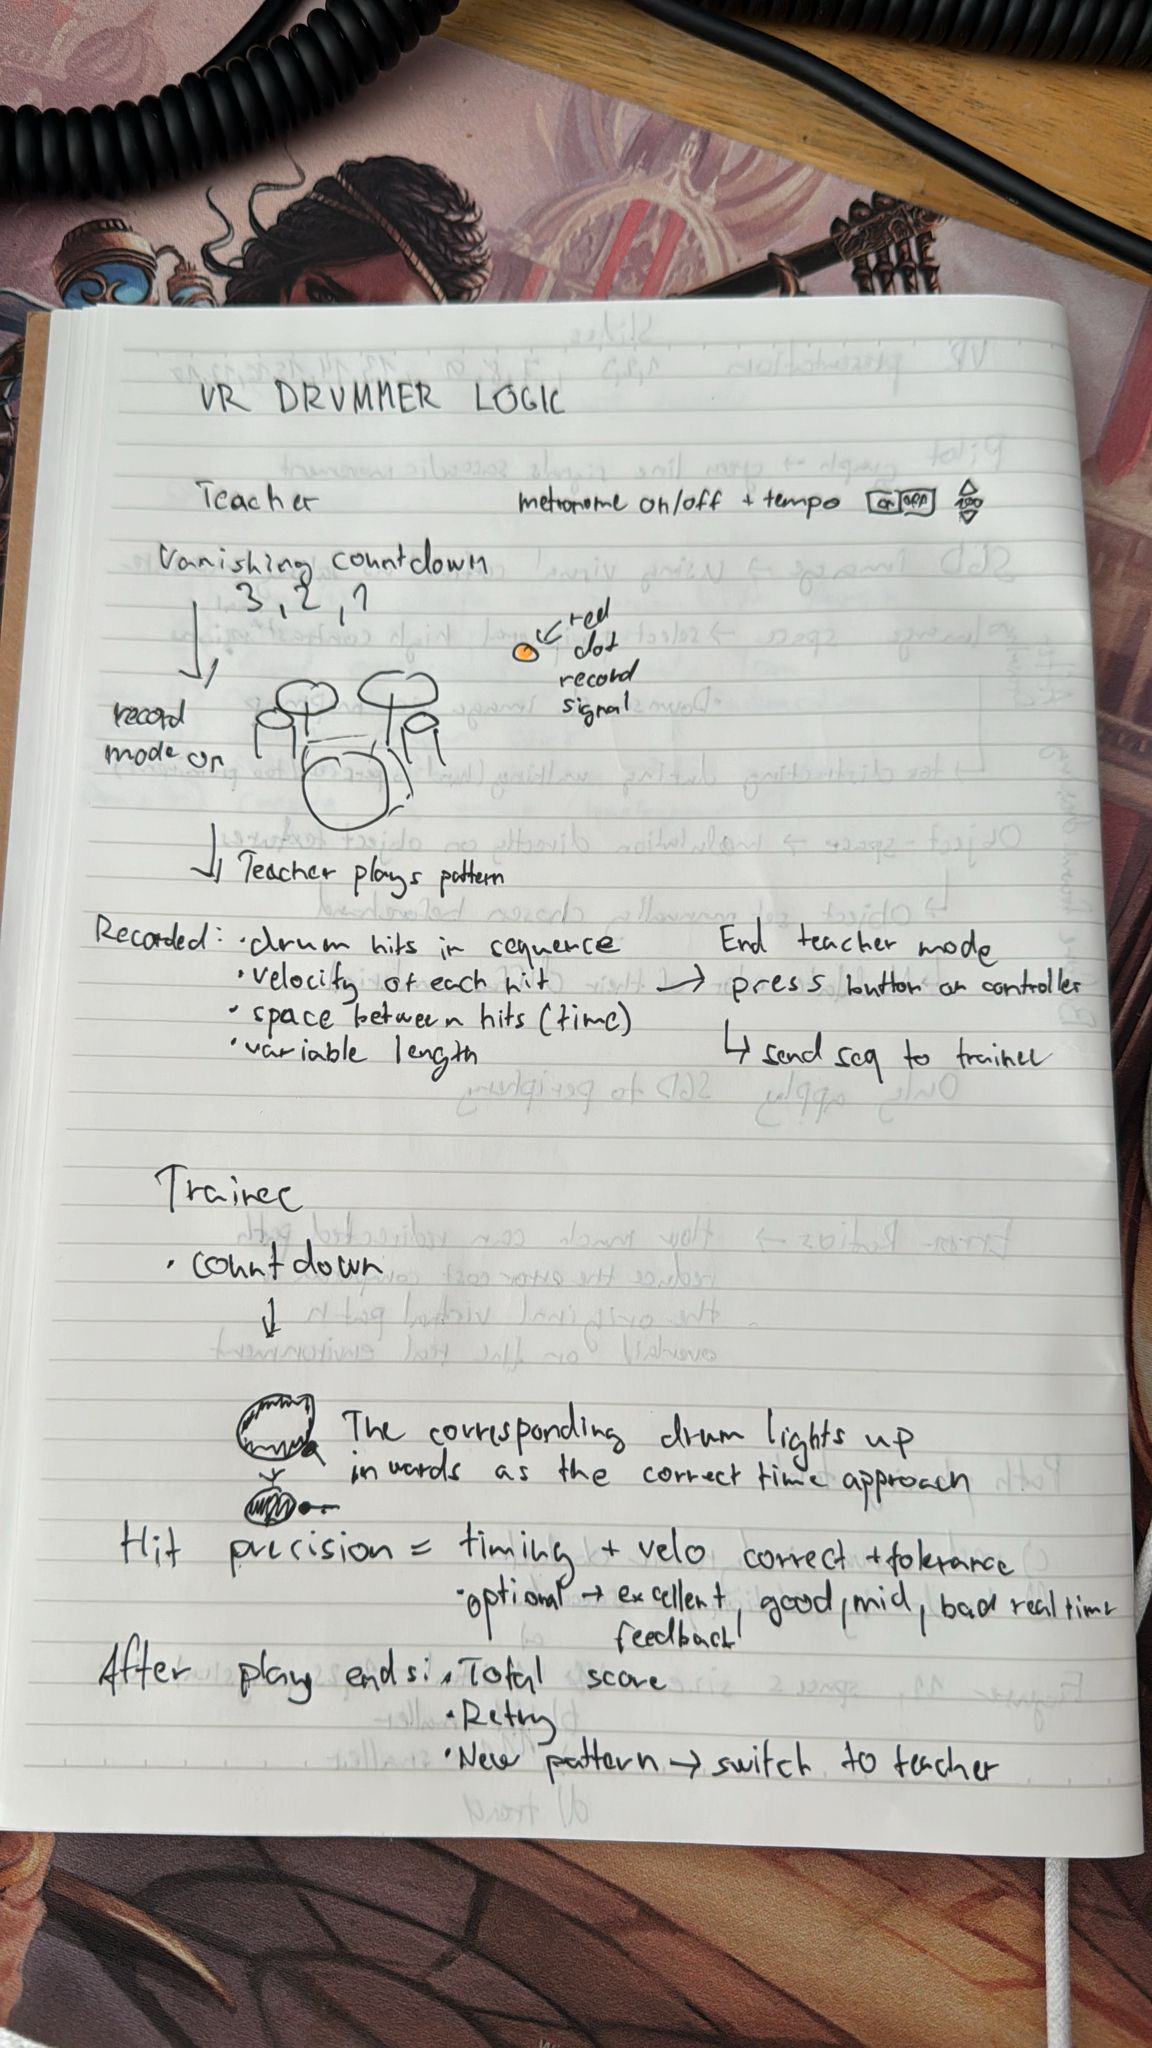 VR DRUMMER LOGIC
Teacher
metronome on/off + tempo ON OFF 120
Vanishing countdown
3, 2, 1
red
dot
record
signal
record
mode on
Teacher plays pattern
Recorded: · drum hits in sequence
· velocity of each hit
· space between hits (time)
· variable length
End teacher mode
→ press button on controller
↳ send seq to trainee
Trainee
· countdown
The corresponding drum lights up
inwards as the correct time approach
Hit precision = timing + velo correct + tolerance
· optional → excellent, good, mid, bad real time
feedback
After play ends: · Total score
· Retry
· New pattern → switch to teacher